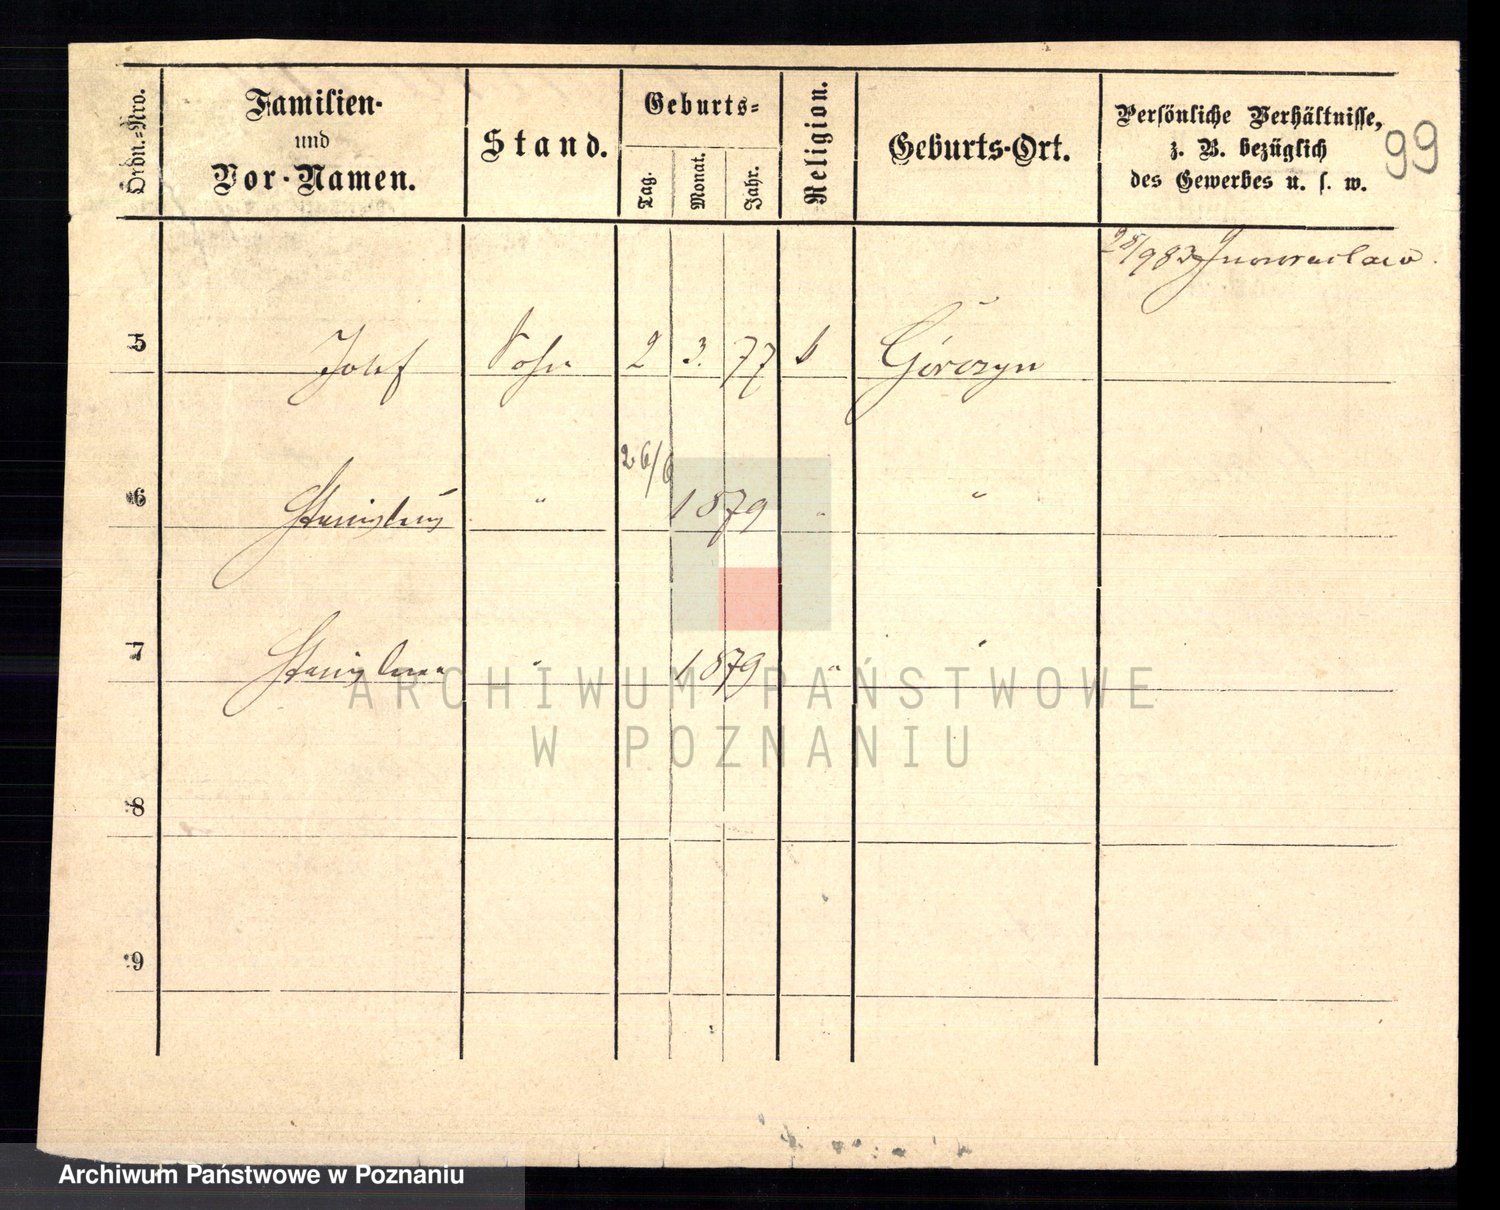 Ordn.=Nro.
Familien-
und
Vor-Namen.
Stand.
Geburts=
Tag.
Monat.
Jahr.
Religion.
Geburts-Ort.
Persönliche Verhältnisse,
z. B. bezüglich
des Gewerbes u. s. w.
99
Inowraclaw.
5 Josef Sohn 2 3. 77 k Górczyn
6 Stanislaus " 26/6 1879 " "
7 " 1879 " "
8
9
ARCHIWUM PAŃSTWOWE
W POZNANIU
Archiwum Państwowe w Poznaniu